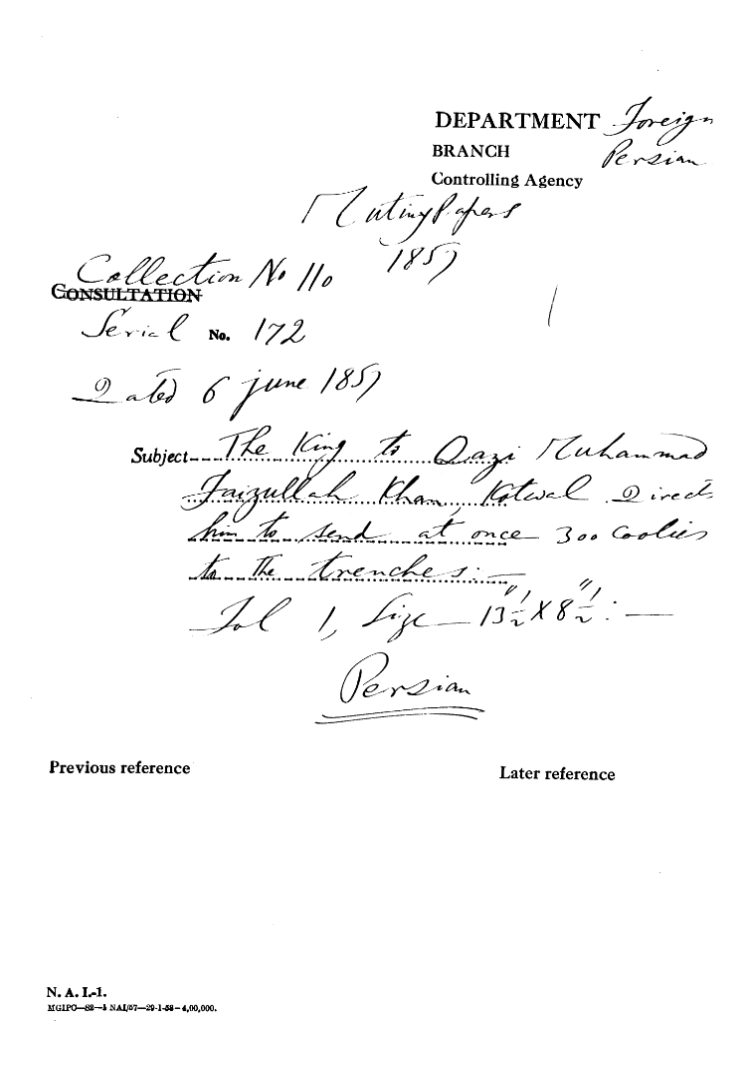 DEPARTMENT Foreign
BRANCH Persian
Controlling Agency
Mutiny Papers
1857
Collection No 110
CONSULTATION
Serial No. 172
Dated 6 june 1857
Subject The King to Qazi Muhammad
Faizullah Khan, Kotwal. Direct
him to send at once 300 Coolies
to the trenches:—
Fol 1, Size — 13 1/2" X 8 1/2":—
Persian
Previous reference
Later reference
N. A. I.-1.
NAI/57—29-1-58—4,00,000.